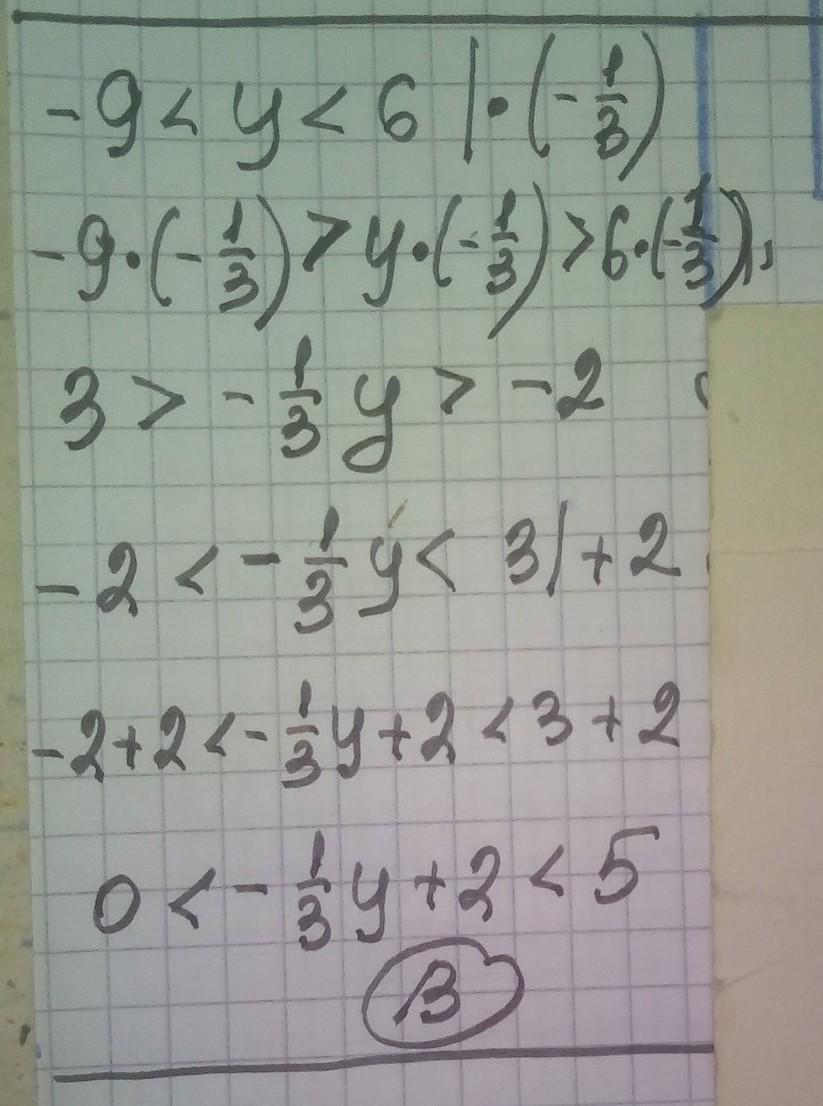 -9 < y < 6 | · (-1/3)
-9·(-1/3) > y·(-1/3) > 6·(-1/3);
3 > -1/3 y > -2
-2 < -1/3 y < 3 | + 2
-2+2 < -1/3 y + 2 < 3 + 2
0 < -1/3 y + 2 < 5
В